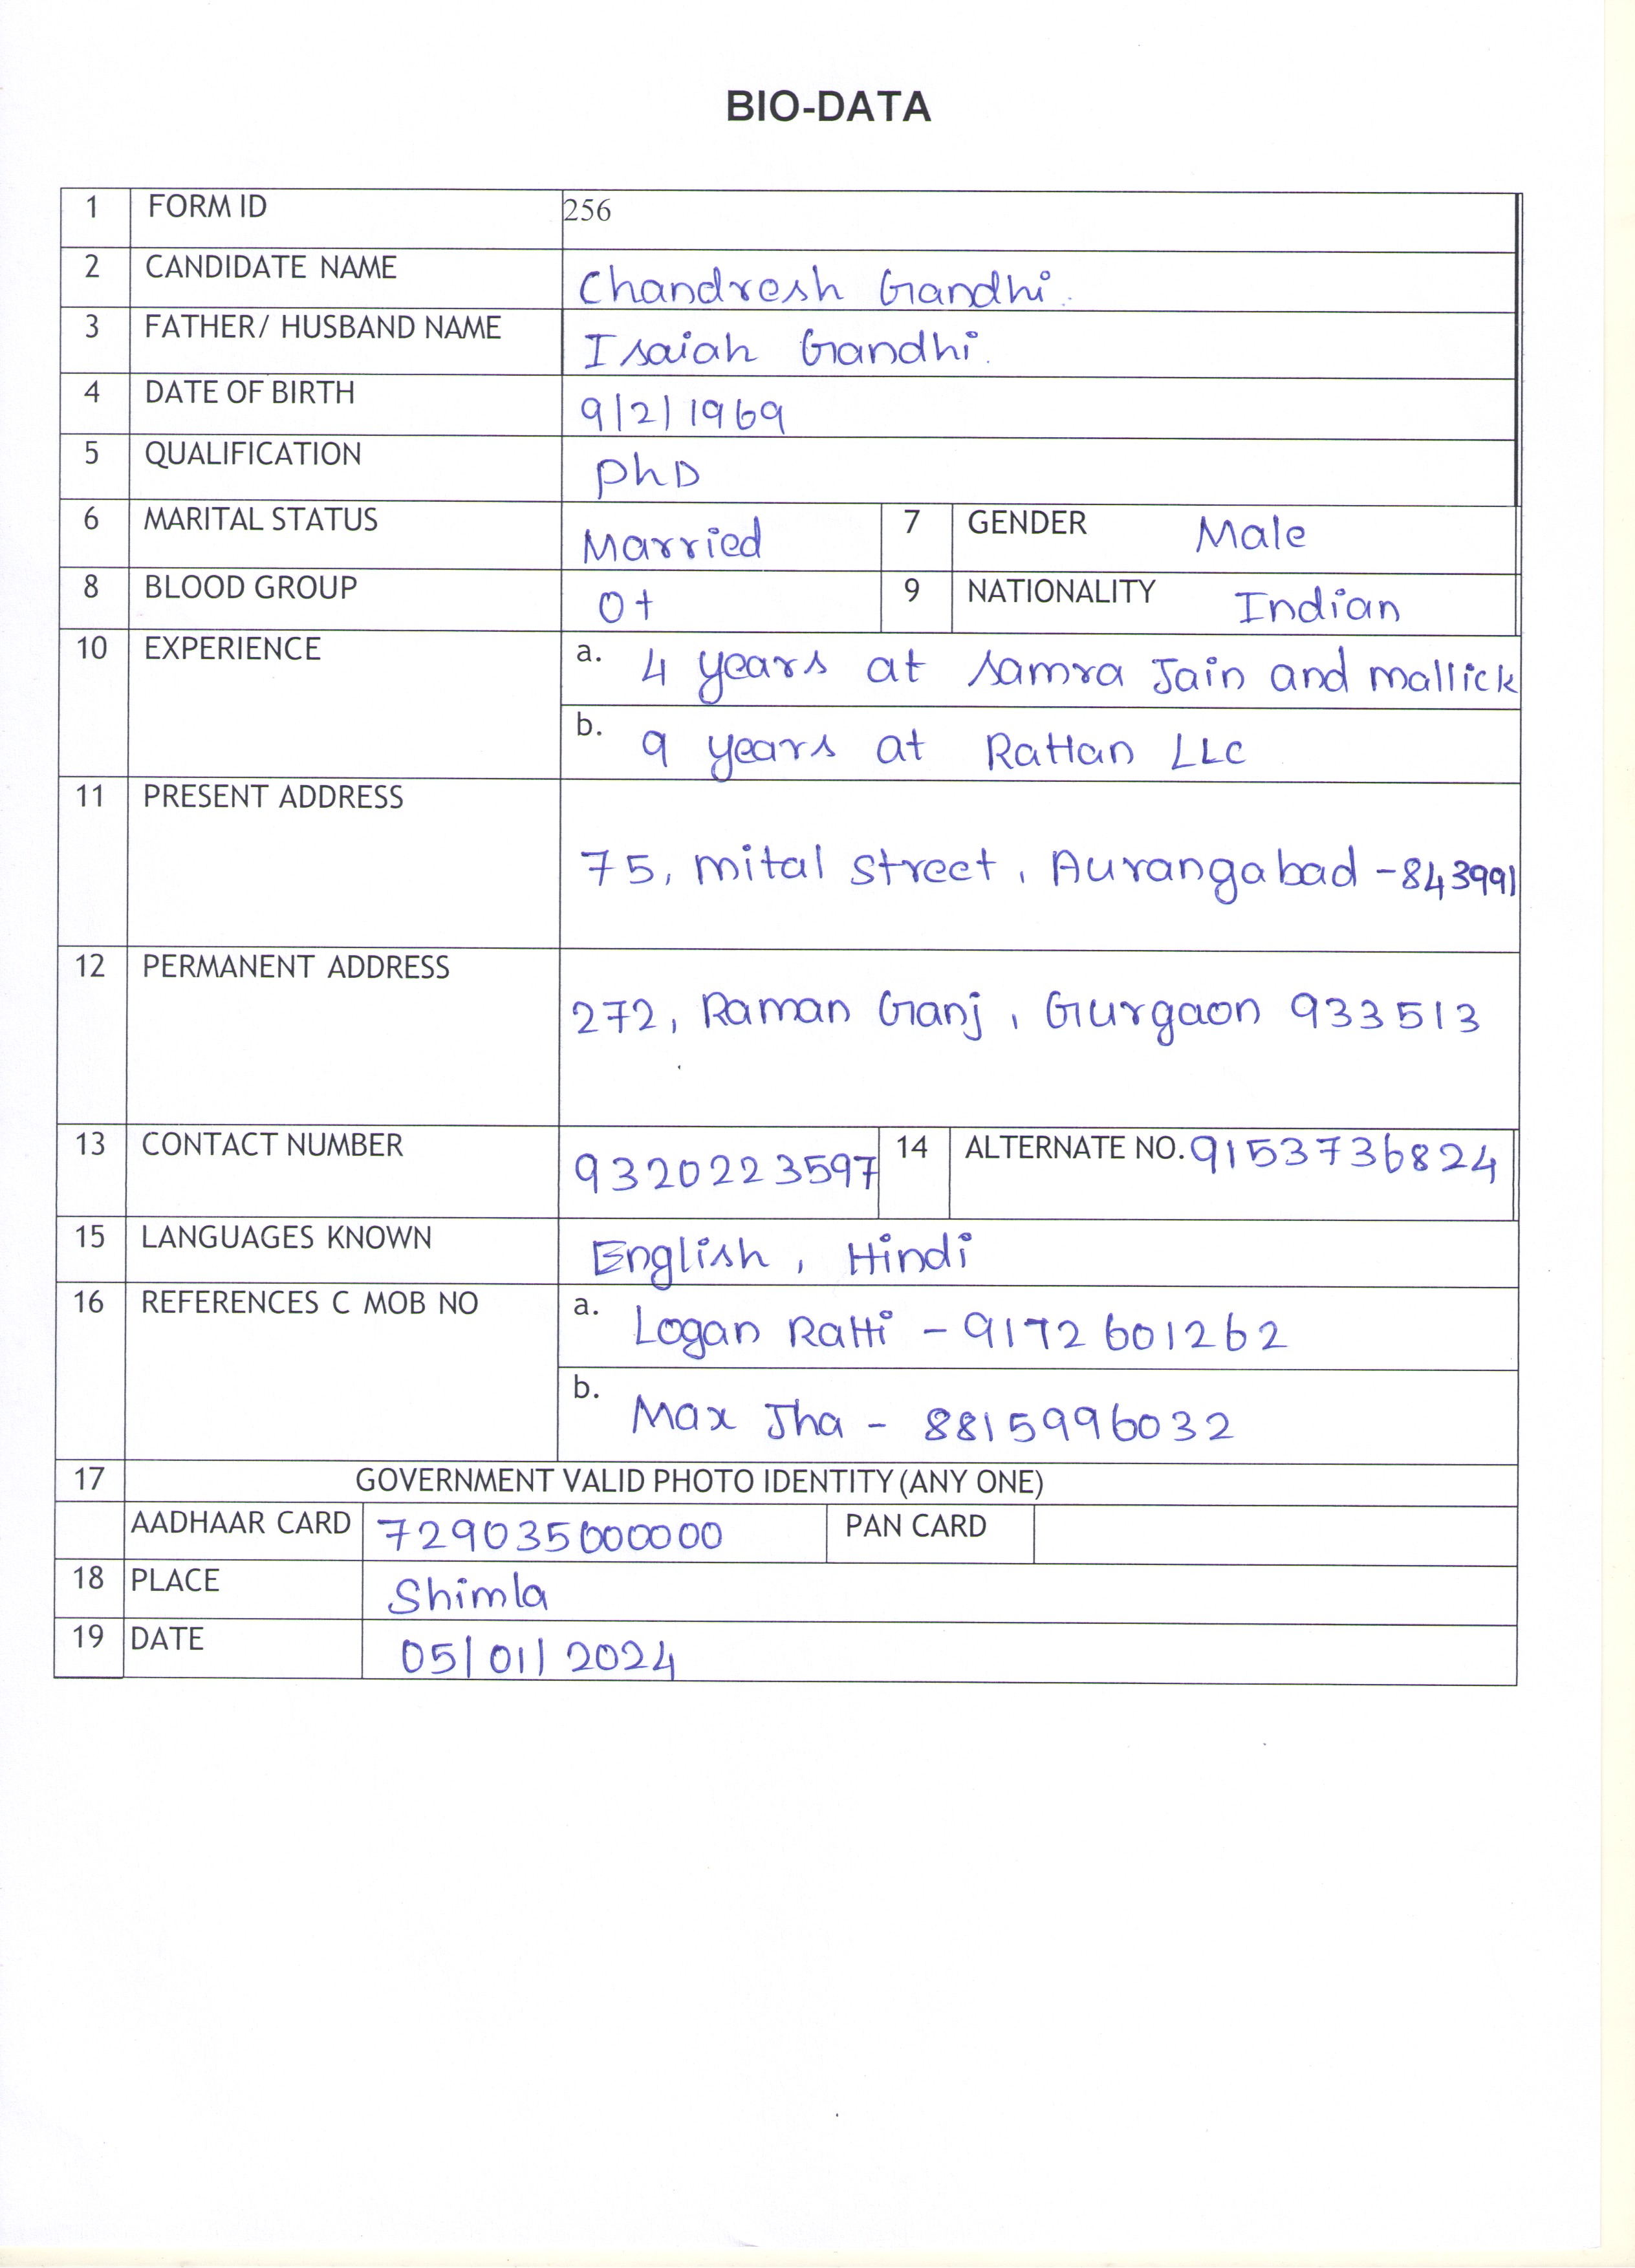 BIO-DATA
1 FORM ID 256
2 CANDIDATE NAME Chandresh Gandhi.
3 FATHER/ HUSBAND NAME Isaiah Gandhi.
4 DATE OF BIRTH 9/2/1969
5 QUALIFICATION PhD
6 MARITAL STATUS Married 7 GENDER Male
8 BLOOD GROUP O+ 9 NATIONALITY Indian
10 EXPERIENCE a. 4 years at Samra Jain and mallick
b. 9 years at Rattan LLC
11 PRESENT ADDRESS
75, mital street, Aurangabad -843991
12 PERMANENT ADDRESS
272, Raman Ganj, Gurgaon 933513
13 CONTACT NUMBER 9320223597 14 ALTERNATE NO. 9153736824
15 LANGUAGES KNOWN English, Hindi
16 REFERENCES C MOB NO a. Logan Ratti - 9172601262
b. Max Jha - 8815996032
17 GOVERNMENT VALID PHOTO IDENTITY (ANY ONE)
AADHAAR CARD 729035000000 PAN CARD
18 PLACE Shimla
19 DATE 05/01/2024